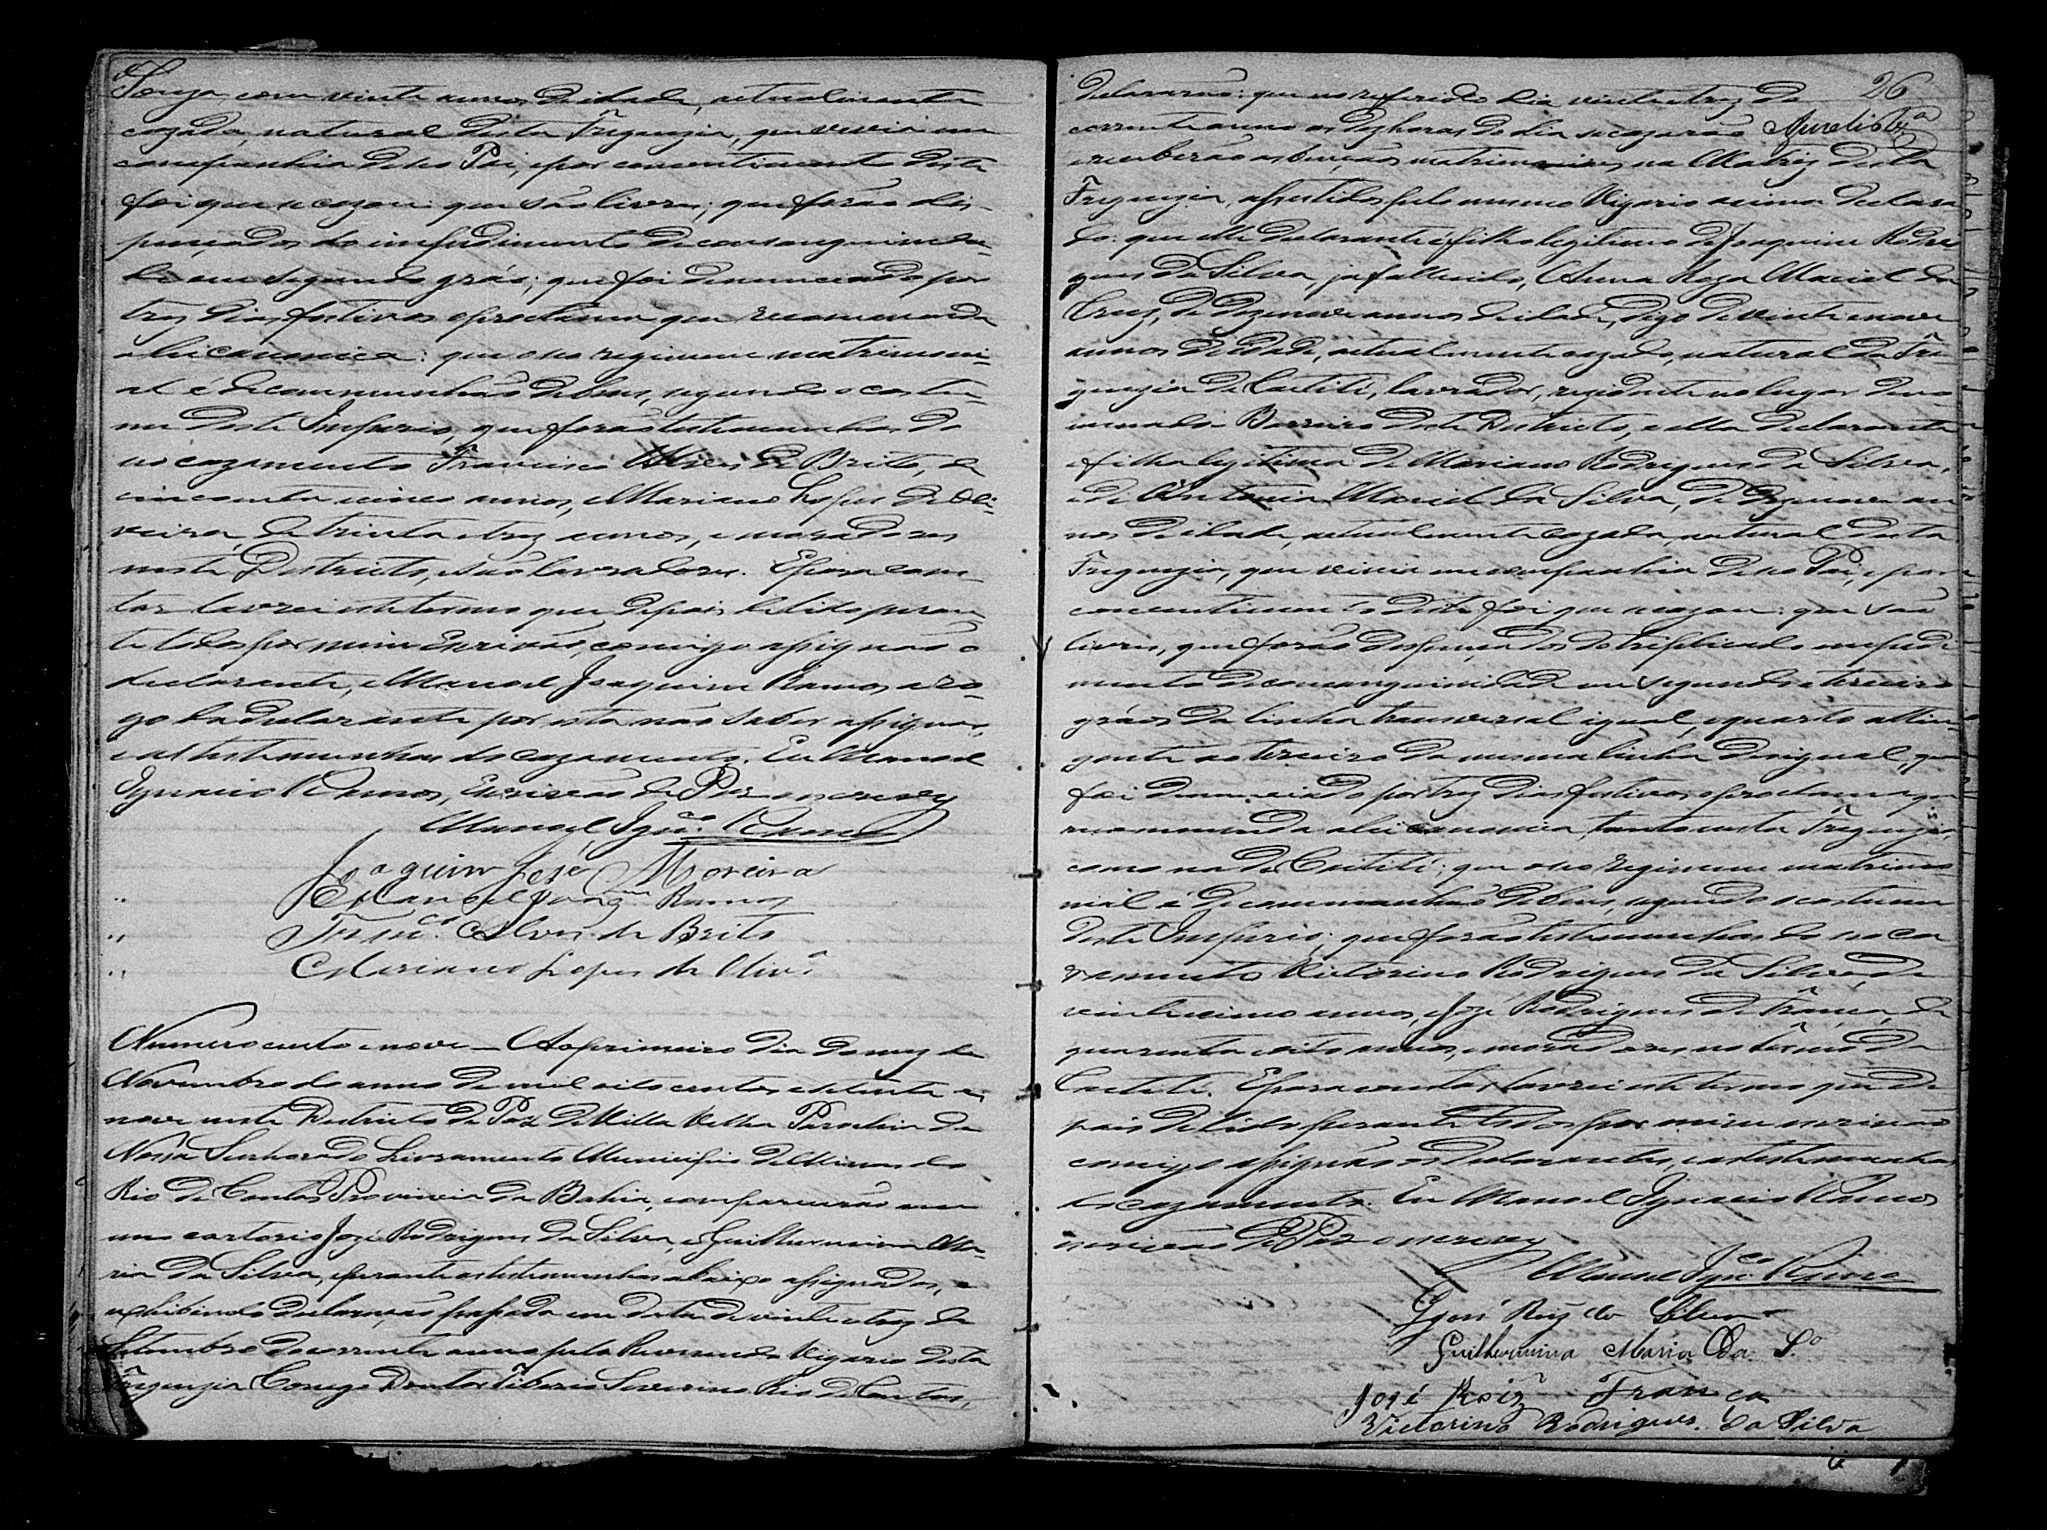 Souza, com vinte annos de idade, actualmente
cazada, natural desta Freguezia, que vevia em
companhia de seo Pai, e por consentimento deste
foi que se cazou: que são livres; que forão dis-
pençados do impedimento de consanguinida-
de em segundo gráo; que foi denunciado por
tres dias festivos o proclama que recommenda
a lei canonica: que o seo regimem matrimoni-
al é de communhão de bens, segundo o costu-
me deste Imperio, que forão testemunhas do
seo cazamento Francisco Alves de Britto, de
cincoenta e cinco annos, e Mariano Lopes de Oli-
veira, de trinta e trez annos, e moradores
neste Districto, e são lavradores. E para cons-
tar lavrei este termo que depois de lido peran-
te todos por mim Escrivão, comigo assignão o
declarante, e Manoel Joaquim Ramos a ro-
go da declarante por esta não saber assignar,
e as testemunhas do cazamento. Eu Manoel
Ignacio Ramos, Escrivão de Paz o escrevy
Manoel Ignco. Ramos
Joaquim José Moreira
Manoel Joaqm Ramos
Franco. Alves de Brito
Mariano Lopes de Olivra
Numero cento e nove — Ao primeiro dia do mez de
Novembro do anno de mil oito centos e setenta e
nove neste Districto de Paz de Villa Velha Parochia de
Nossa Senhora do Livramento Municipio de Minas do
Rio de Contas Provincia da Bahia, comparecerão em
meo cartorio José Rodrigues da Silva, e Guilhermina Ma-
ria da Silva, e perante as testemunhas abaixo assignadas, e
exhibindo declaração passada em data de vinte e trez de
Setembro do corrente anno pelo Reverendo Vigario desta
Freguezia Conego Doutor Tiberio Severino Rio de Contas,
26
declararão: que no referido dia vinte e trez do
corrente anno as dez horas do dia se cazarão
e receberão as bençãos matrimoniaes, na Matriz desta
Freguezia, assestidos pelo mesmo Vigario acima declara
do: que elle declarante é filho legitimo de Joaquim Rodri
gues da Silva, ja fallecido, e Anna Roza Maciel da
Cruz, de dezenove annos de idade, digo de vinte e nove
annos de idade, actualmente cazado, natural da Fre
guezia de Caetité, lavrador, rezidente no lugar deno
minado Barreiro deste Districto, e ella declarante
é filha legitima de Mariano Rodrigues da Silva,
e de Antonia Maciel da Silva, de dezenove an
nos de idade, actualmente cazada, natural desta
Freguezia, que vivia em companhia de seo Pai, e por
consentimento deste foi que se cazou: que são
livres, que forão despençados do triplicado impedi
mento de consanguinidade em segundo e terceiro
gráos da linha transversal igual, e quarto attin
gente ao terceiro da mesma linha desigual, que
foi denunciado por trez dias festivos o proclama que
recommenda a lei canonica, tanto nesta Freguezia,
como na de Caetité; que o seo regimem matrimo
nial é de communhão de bens, segundo o costume
deste Imperio; que forão testemunhas do seo ca
zamento Victorino Rodrigues da Silva, de
vinte e cinco annos, e José Rodrigues de França, de
quarenta e oito annos, e moradores no termo de
Caetité. E para constar lavrei este termo que de
pois de lido perante todos por mim escrivão
comigo assignão os declarantes, e as testemunhas
do cazamento. Eu Manoel Ignacio Ramos
escrivão de Paz o escrevy
Manoel Ignco. Ramos
José Roiz da Silva
Guilhermina Maria Da Sa
José Roiz França
Victorino Rodrigues da Silva